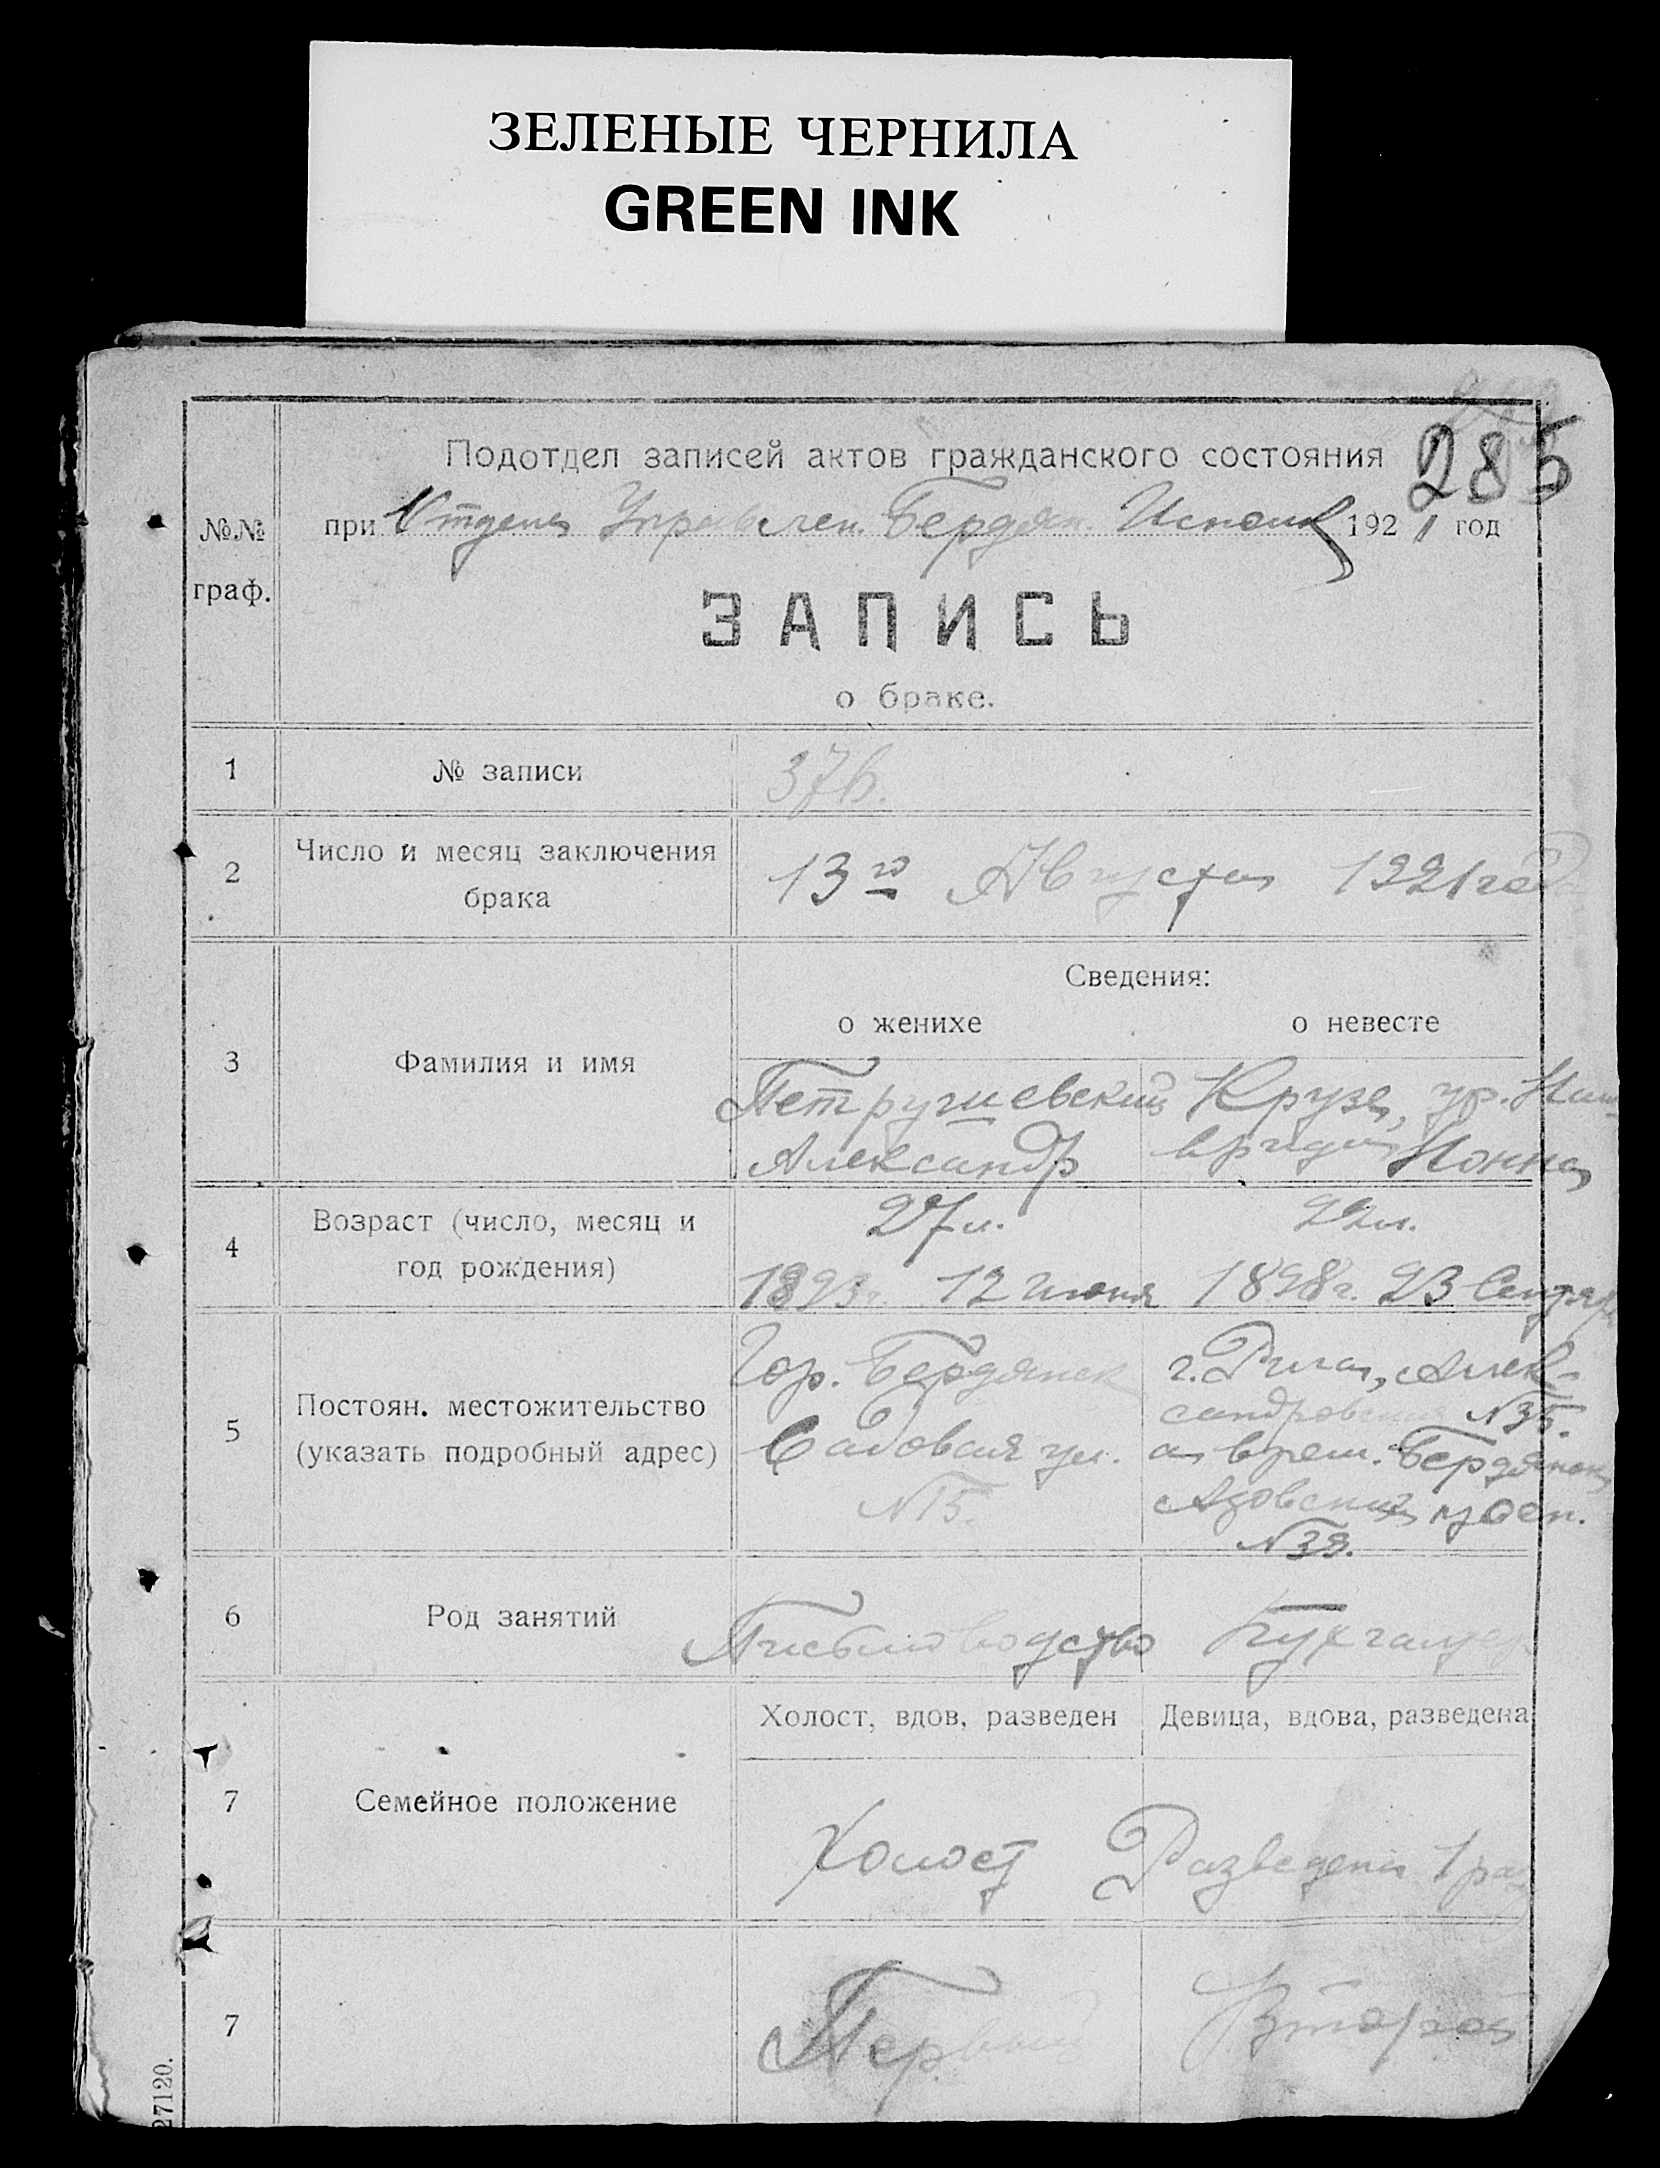 ЗЕЛЕНЫЕ ЧЕРНИЛА
GREEN INK
285
Подотдел записей актов гражданского состояния
при Отдела Управлен. Бердян. Исполк 1921 год
№№ граф.
ЗАПИСЬ
о браке.
1 № записи 376.
2 Число и месяц заключения брака
13го Августа 1921 год
Сведения:
о женихе о невесте
3 Фамилия и имя
Петрушевский Крузе, ур.
Александр Нонна
4 Возраст (число, месяц и год рождения)
27 л. 22 л.
1893 г. 12 июня 1898 г. 23 Сентября
5 Постоян. местожительство (указать подробный адрес)
Гор. Бердянск г. Рига, Алек-
сандровская №
Садовая ул. а врем. Бердянск
№15. Азовский просп.
№39.
6 Род занятий
Письмоводство Бухгалтер
Холост, вдов, разведен Девица, вдова, разведена
7 Семейное положение
Холост Разведена 1 раз
7 Первый Второй
27120.